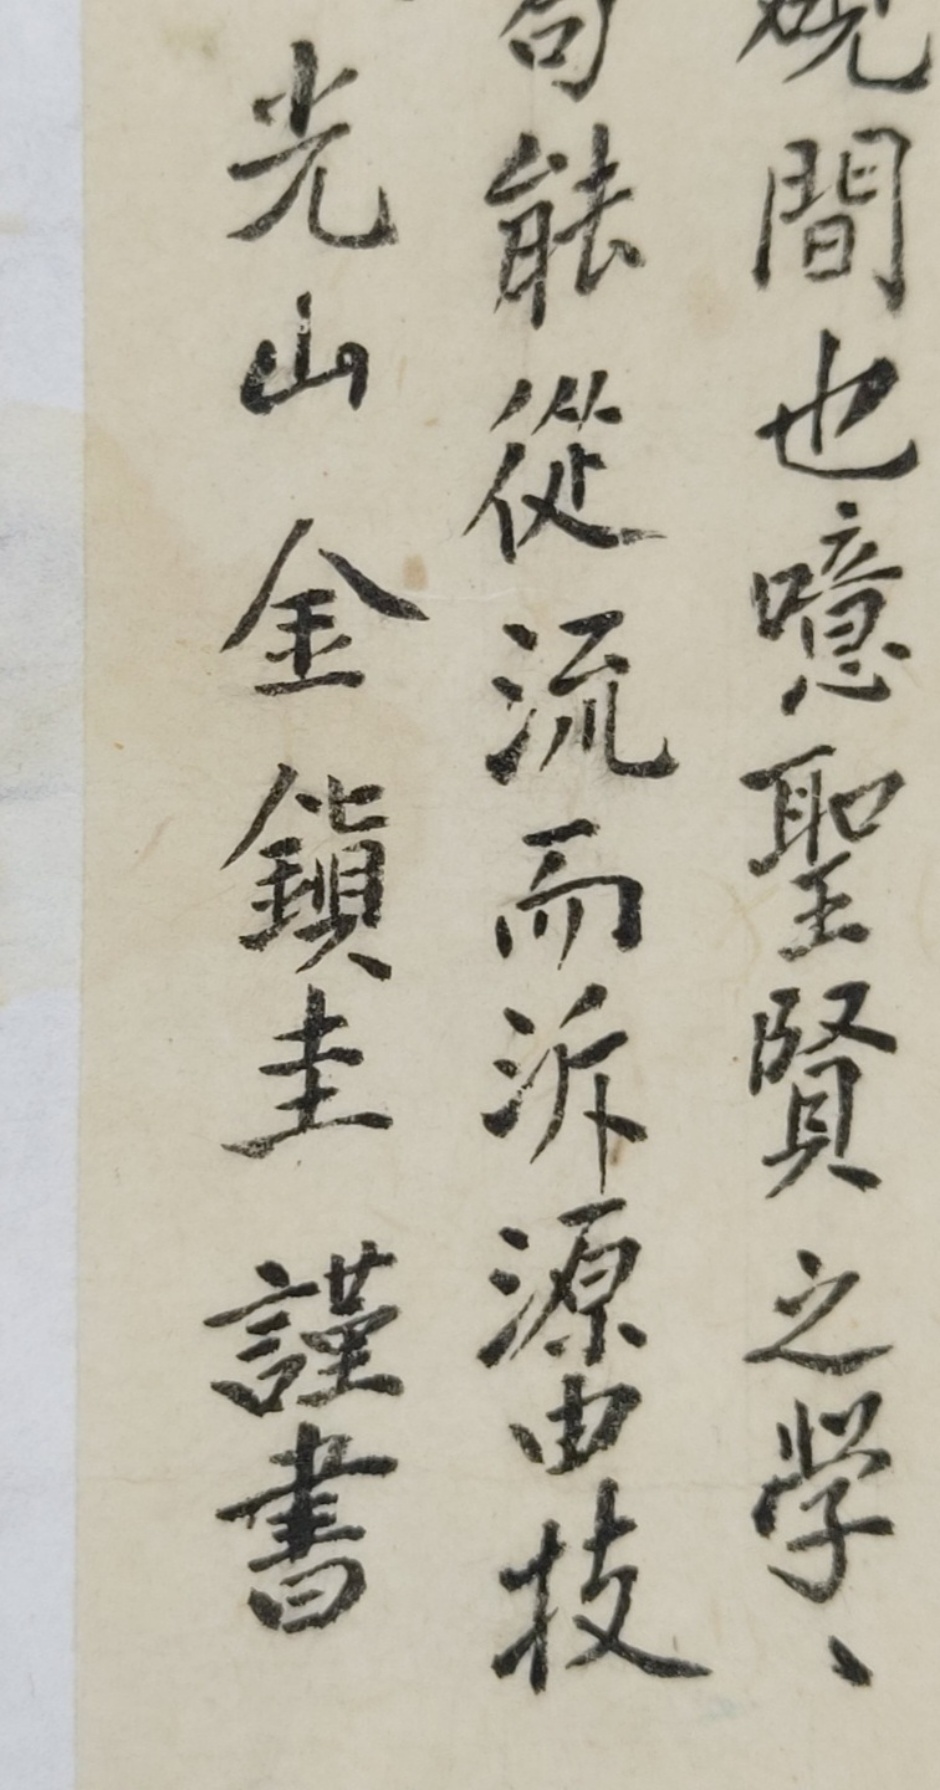 間也噫聖賢之学、
能從流而泝源由技
光山金鎖圭謹書